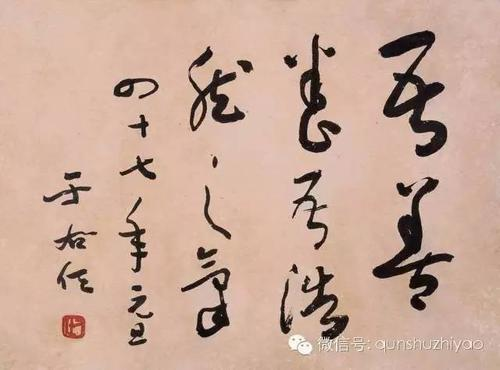 吾善
養吾浩
然之氣
四十七年元旦
于右任
微信号: qunshuzhiyao